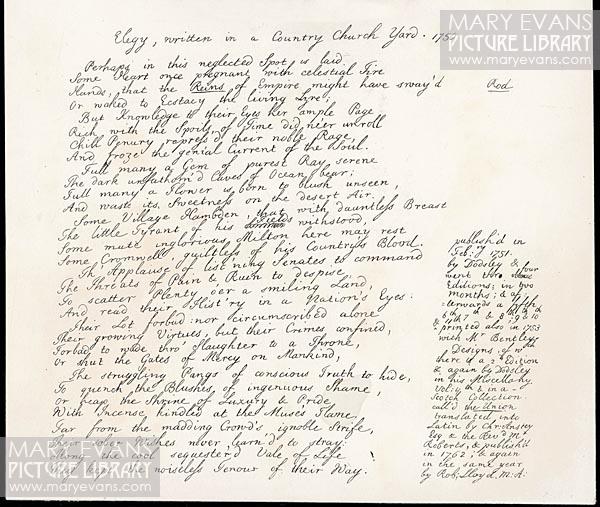 MARY EVANS
PICTURE LIBRARY
www.maryevans.com
Elegy, written in a Country Church Yard. 1750
Perhaps in this neglected Spot is laid
Some Heart once pregnant with celestial Fire
Hands, that the Reins of Empire might have sway'd Rod
Or waked to Ecstacy the living Lyre;
But Knowledge to their Eyes her ample Page
Rich with the Spoils of Time did ne'er unroll
Chill Penury repress'd their noble Rage
And froze the genial Current of the Soul.
Full many a Gem of purest Ray serene
The dark unfathom'd Caves of Ocean bear;
Full many a Flower is born to blush unseen,
And waste its Sweetness on the desert Air.
Some Village Hambden, that with dauntless Breast
The little Tyrant of his Fields withstood,
Some mute inglorious Milton here may rest
Some Cromwell, guiltless of his Country's Blood.
Th' Applause of list'ning Senates to command
The Threats of Pain & Ruin to despise,
To scatter Plenty o'er a smiling Land,
And read their Hist'ry in a Nation's Eyes:
Their Lot forbad: nor circumscribed alone
Their growing Virtues, but their Crimes confined,
Forbad to wade thro' Slaughter to a Throne,
Or shut the Gates of Mercy on Mankind,
The struggling Pangs of conscious Truth to hide,
To quench the Blushes of ingenuous Shame,
Or heap the Shrine of Luxury & Pride
With Incense, kindled at the Muse's Flame.
Far from the madding Crowd's ignoble Strife,
Their sober Wishes never learn'd to stray:
Along the cool sequester'd Vale of Life
the noiseless Tenour of their Way.
publish'd in
Feb:ry 1751.
by Dodsley &
went thro' four
Editions; in two
months; & af-
-terwards a fifth
6th 7th & 8th 9th & 10th
& 11th
printed also in 1753
with Mr Bentley's
Designs, of wch
there is a 2d Edition
& again by Dodsley
in his Miscellany,
Vol: 4th & in a
Scotch Collection
call'd the Union.
translated into
Latin by Chr: Anstey
Esq, & the Revd Mr
Roberts, & publish'd
in 1762; & again
in the same year
by Rob: Lloyd, M: A:
MARY EVANS
PICTURE LIBRARY
www.maryevans.com
MARY EVANS
PICTURE LIBRARY
www.maryevans.com